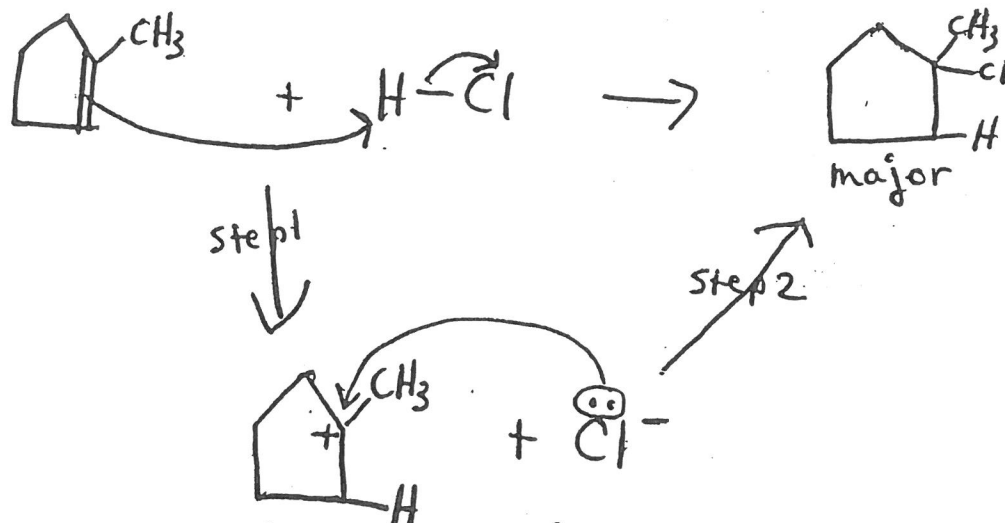 CH3
+ H-Cl
CH3
Cl
H
major
step1
step2
CH3
+
+ Cl-
H